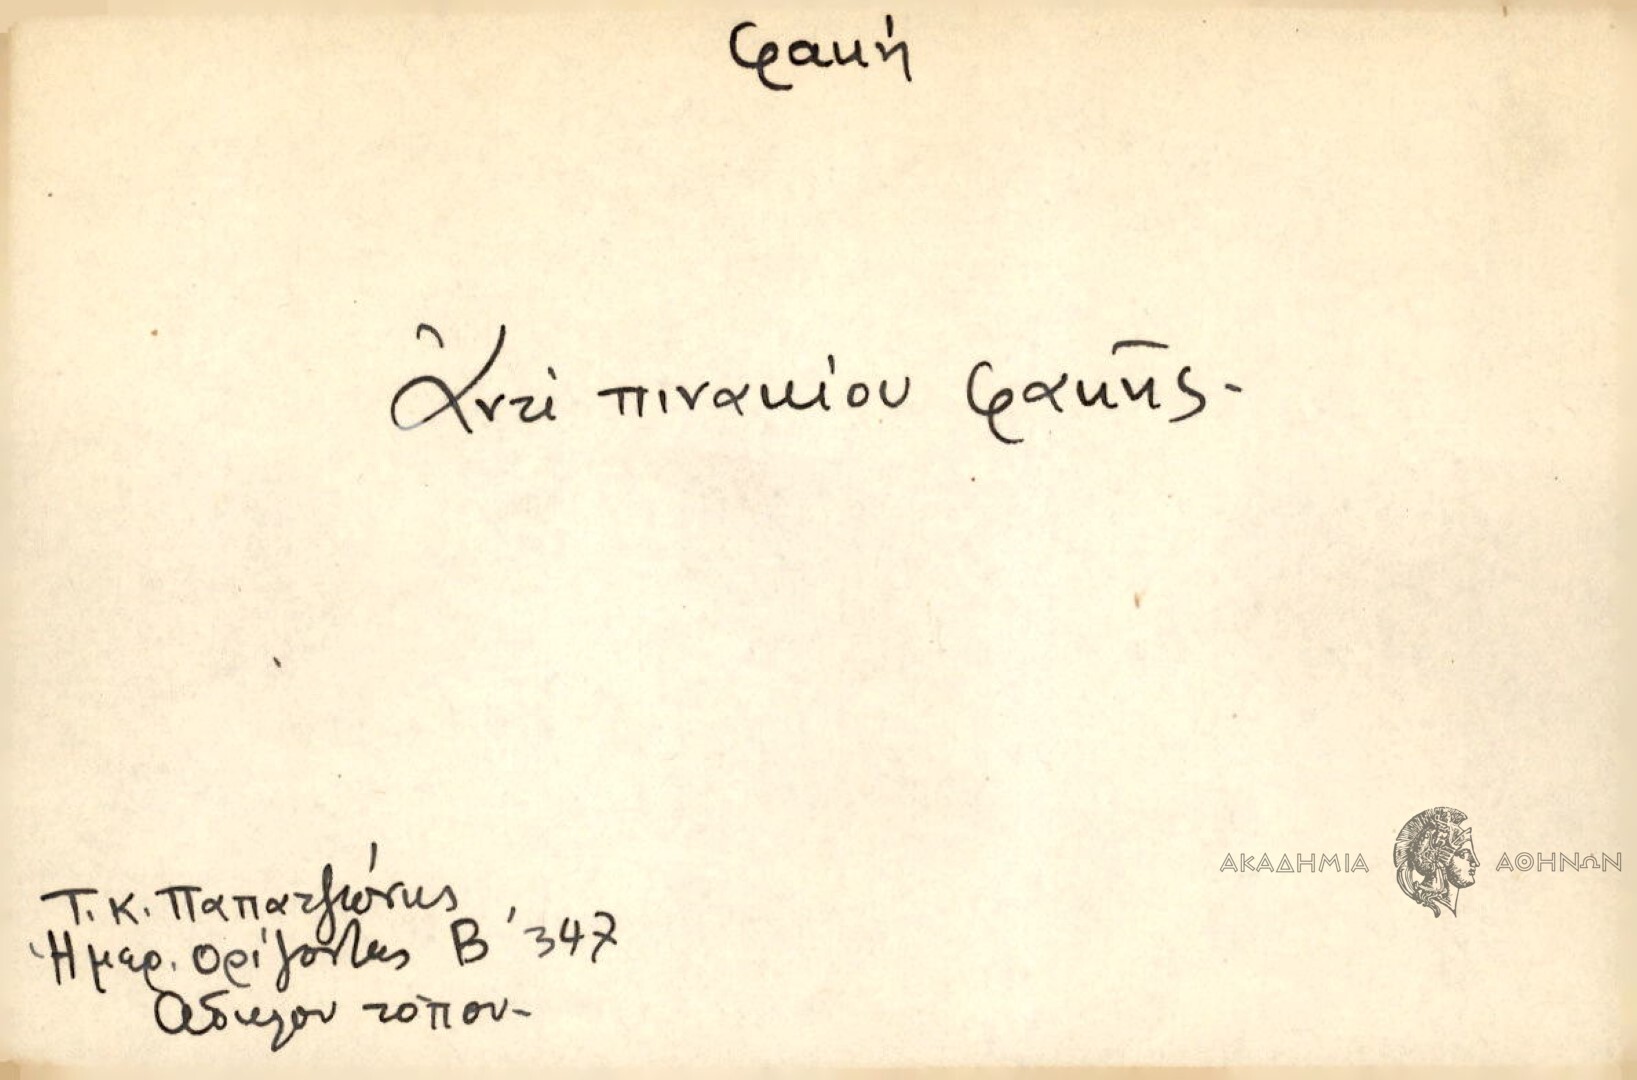 φακή
Ἀντὶ πινακίου φακῆς-
Τ.Κ. Παπατζώνης
Ἡμερ. Ορίζοντες Β' 347
Αδήλου τόπου-
ΑΚΑΔΗΜΙΑ ΑΘΗΝΩΝ